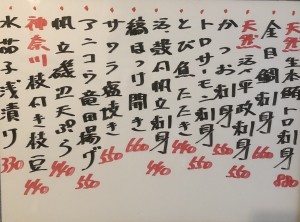 天然 生本鮪トロ刺身 880
金目鯛刺身 660
天然 活〆平政刺身 550
かつお刺身 550
トロサーモン刺身 550
とび魚たたき
活〆穴子刺身 440
縞ほっけ開き 660
サワラ塩焼き 550
アンコウ竜田揚げ 550
帆立磯辺天ぷら 440
神奈川 枝付き枝豆 440
水茄子浅漬け 330